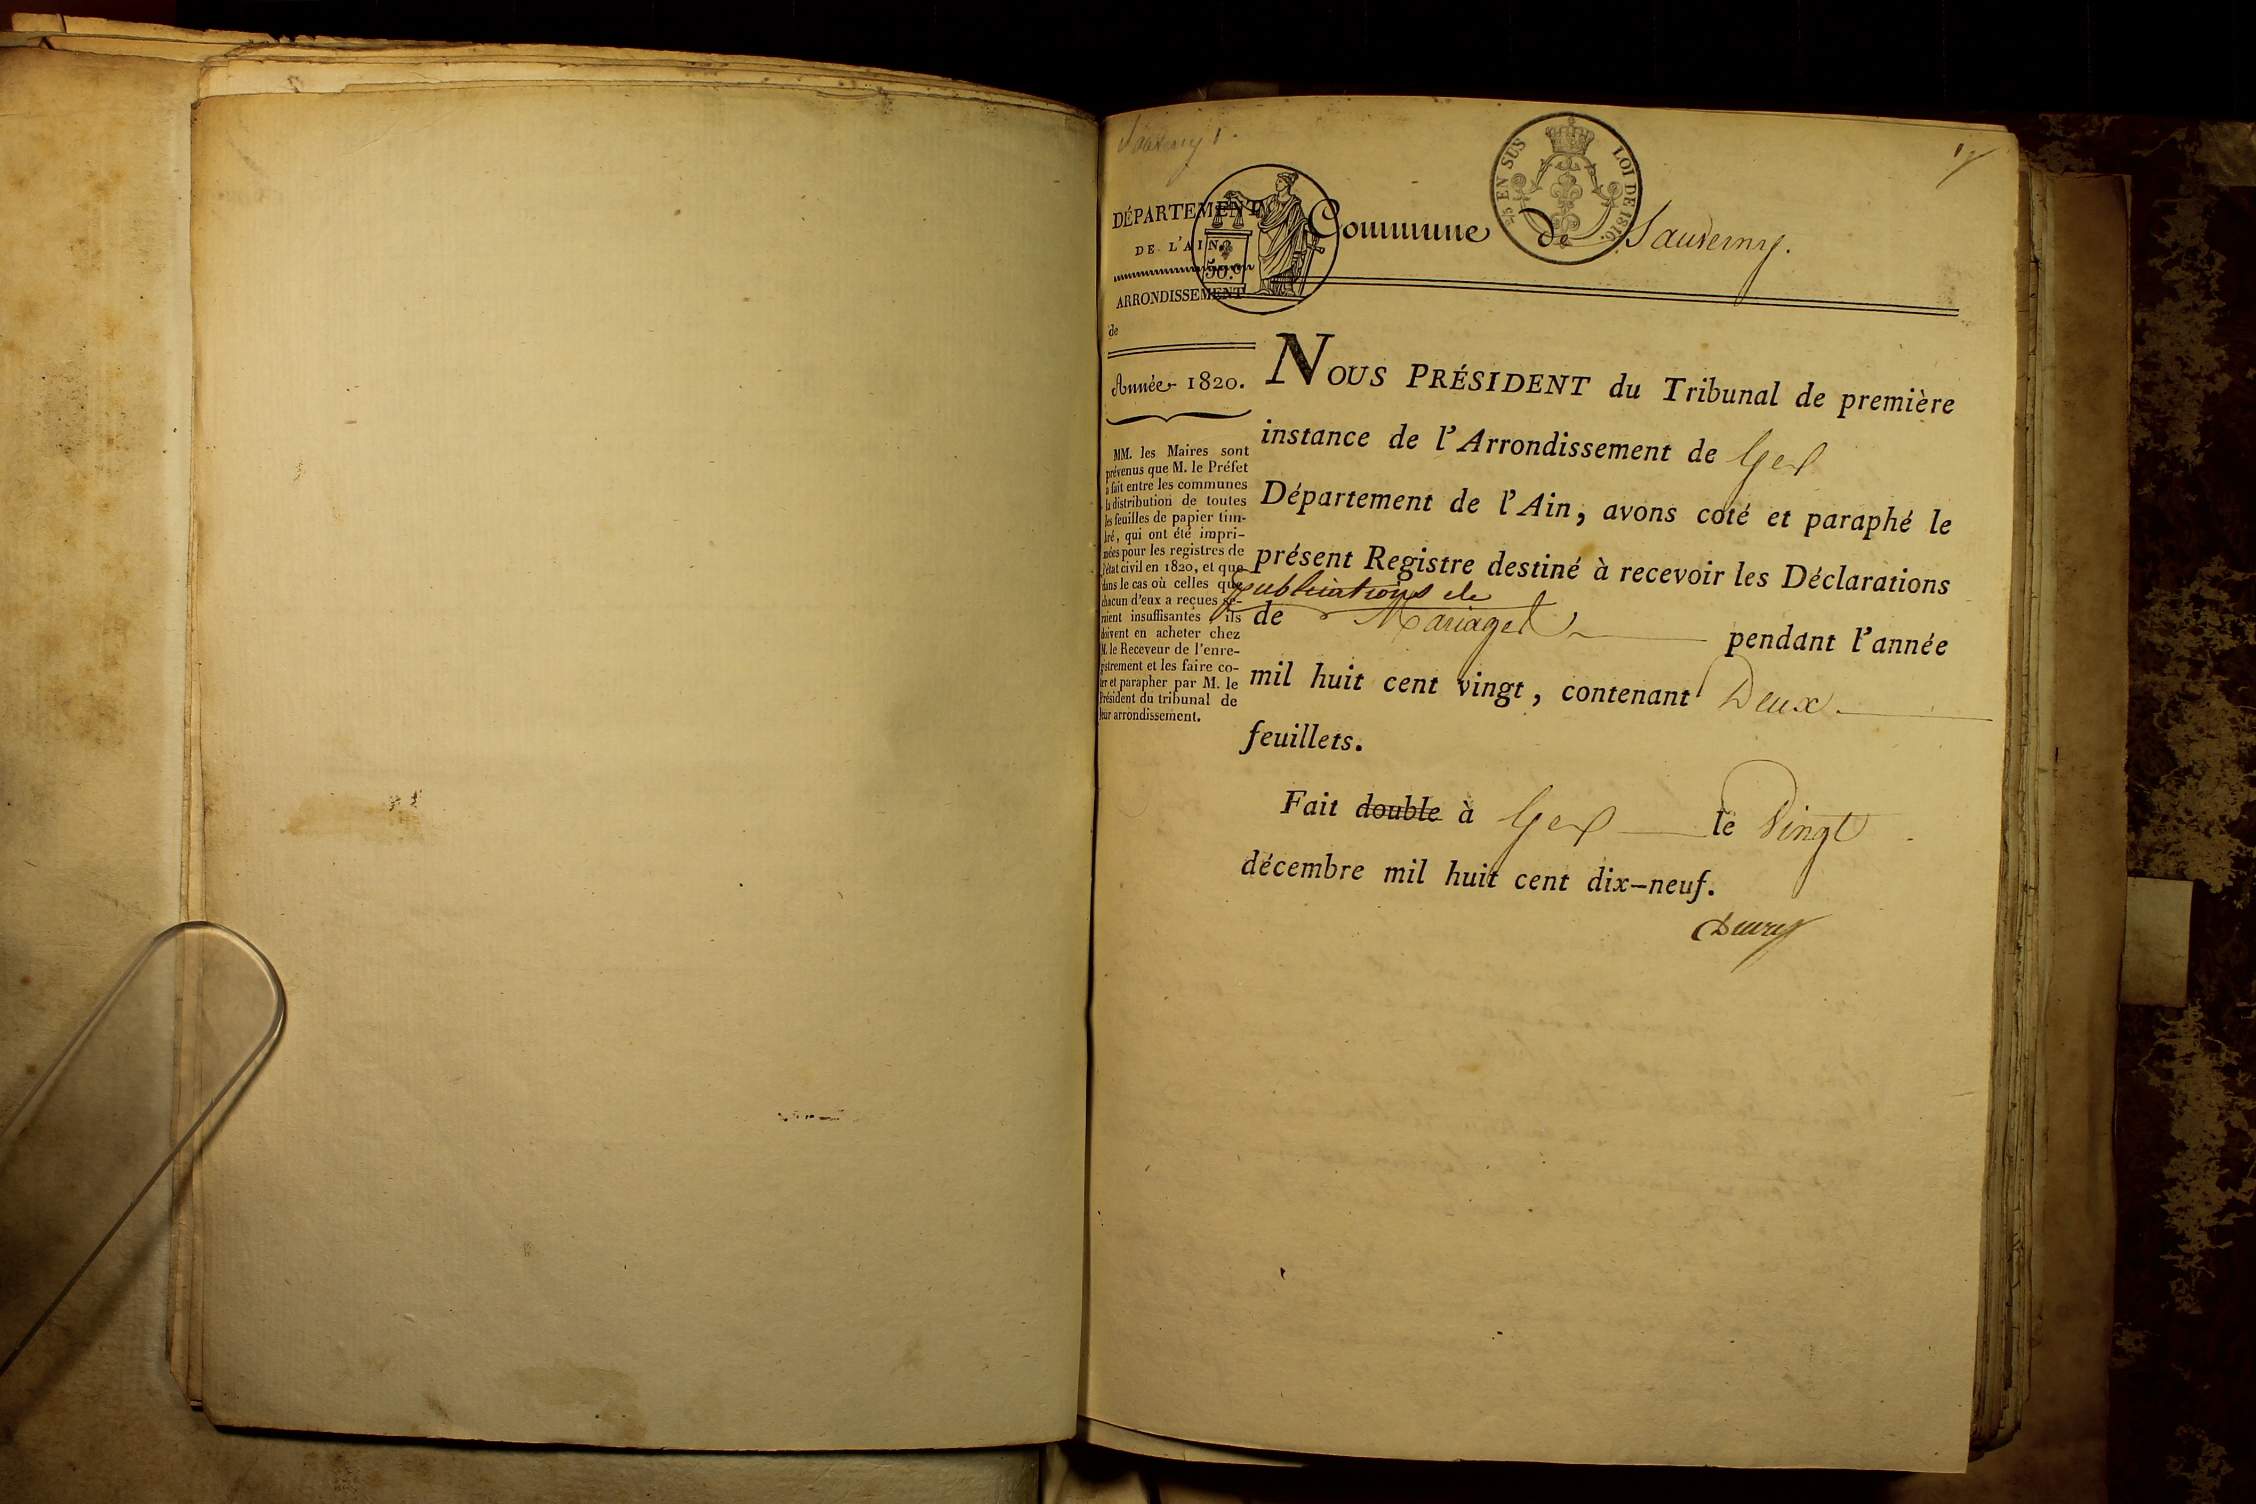 Sauverny 1.
DÉPARTEMENT
DE L'AIN
ARRONDISSEMENT
de
50.c
EN SUS
LOI DE 1816.
Commune de Sauverny.
Année 1820.
MM. les Maires sont
prévenus que M. le Préfet
a fait entre les communes
la distribution de toutes
les feuilles de papier tim-
bré, qui ont été impri-
mées pour les registres de
l'état civil en 1820, et que
dans le cas où celles que
chacun d'eux a reçues se-
raient insuffisantes, ils
doivent en acheter chez
M. le Receveur de l'enre-
gistrement et les faire co-
ter et parapher par M. le
Président du tribunal de
leur arrondissement.
NOUS PRÉSIDENT du Tribunal de première
instance de l'Arrondissement de Gex
Département de l'Ain, avons coté et paraphé le
présent Registre destiné à recevoir les Déclarations
publications de
de Mariages pendant l'année
mil huit cent vingt, contenant Deux
feuillets.
Fait double à Gex le Vingt
décembre mil huit cent dix-neuf.